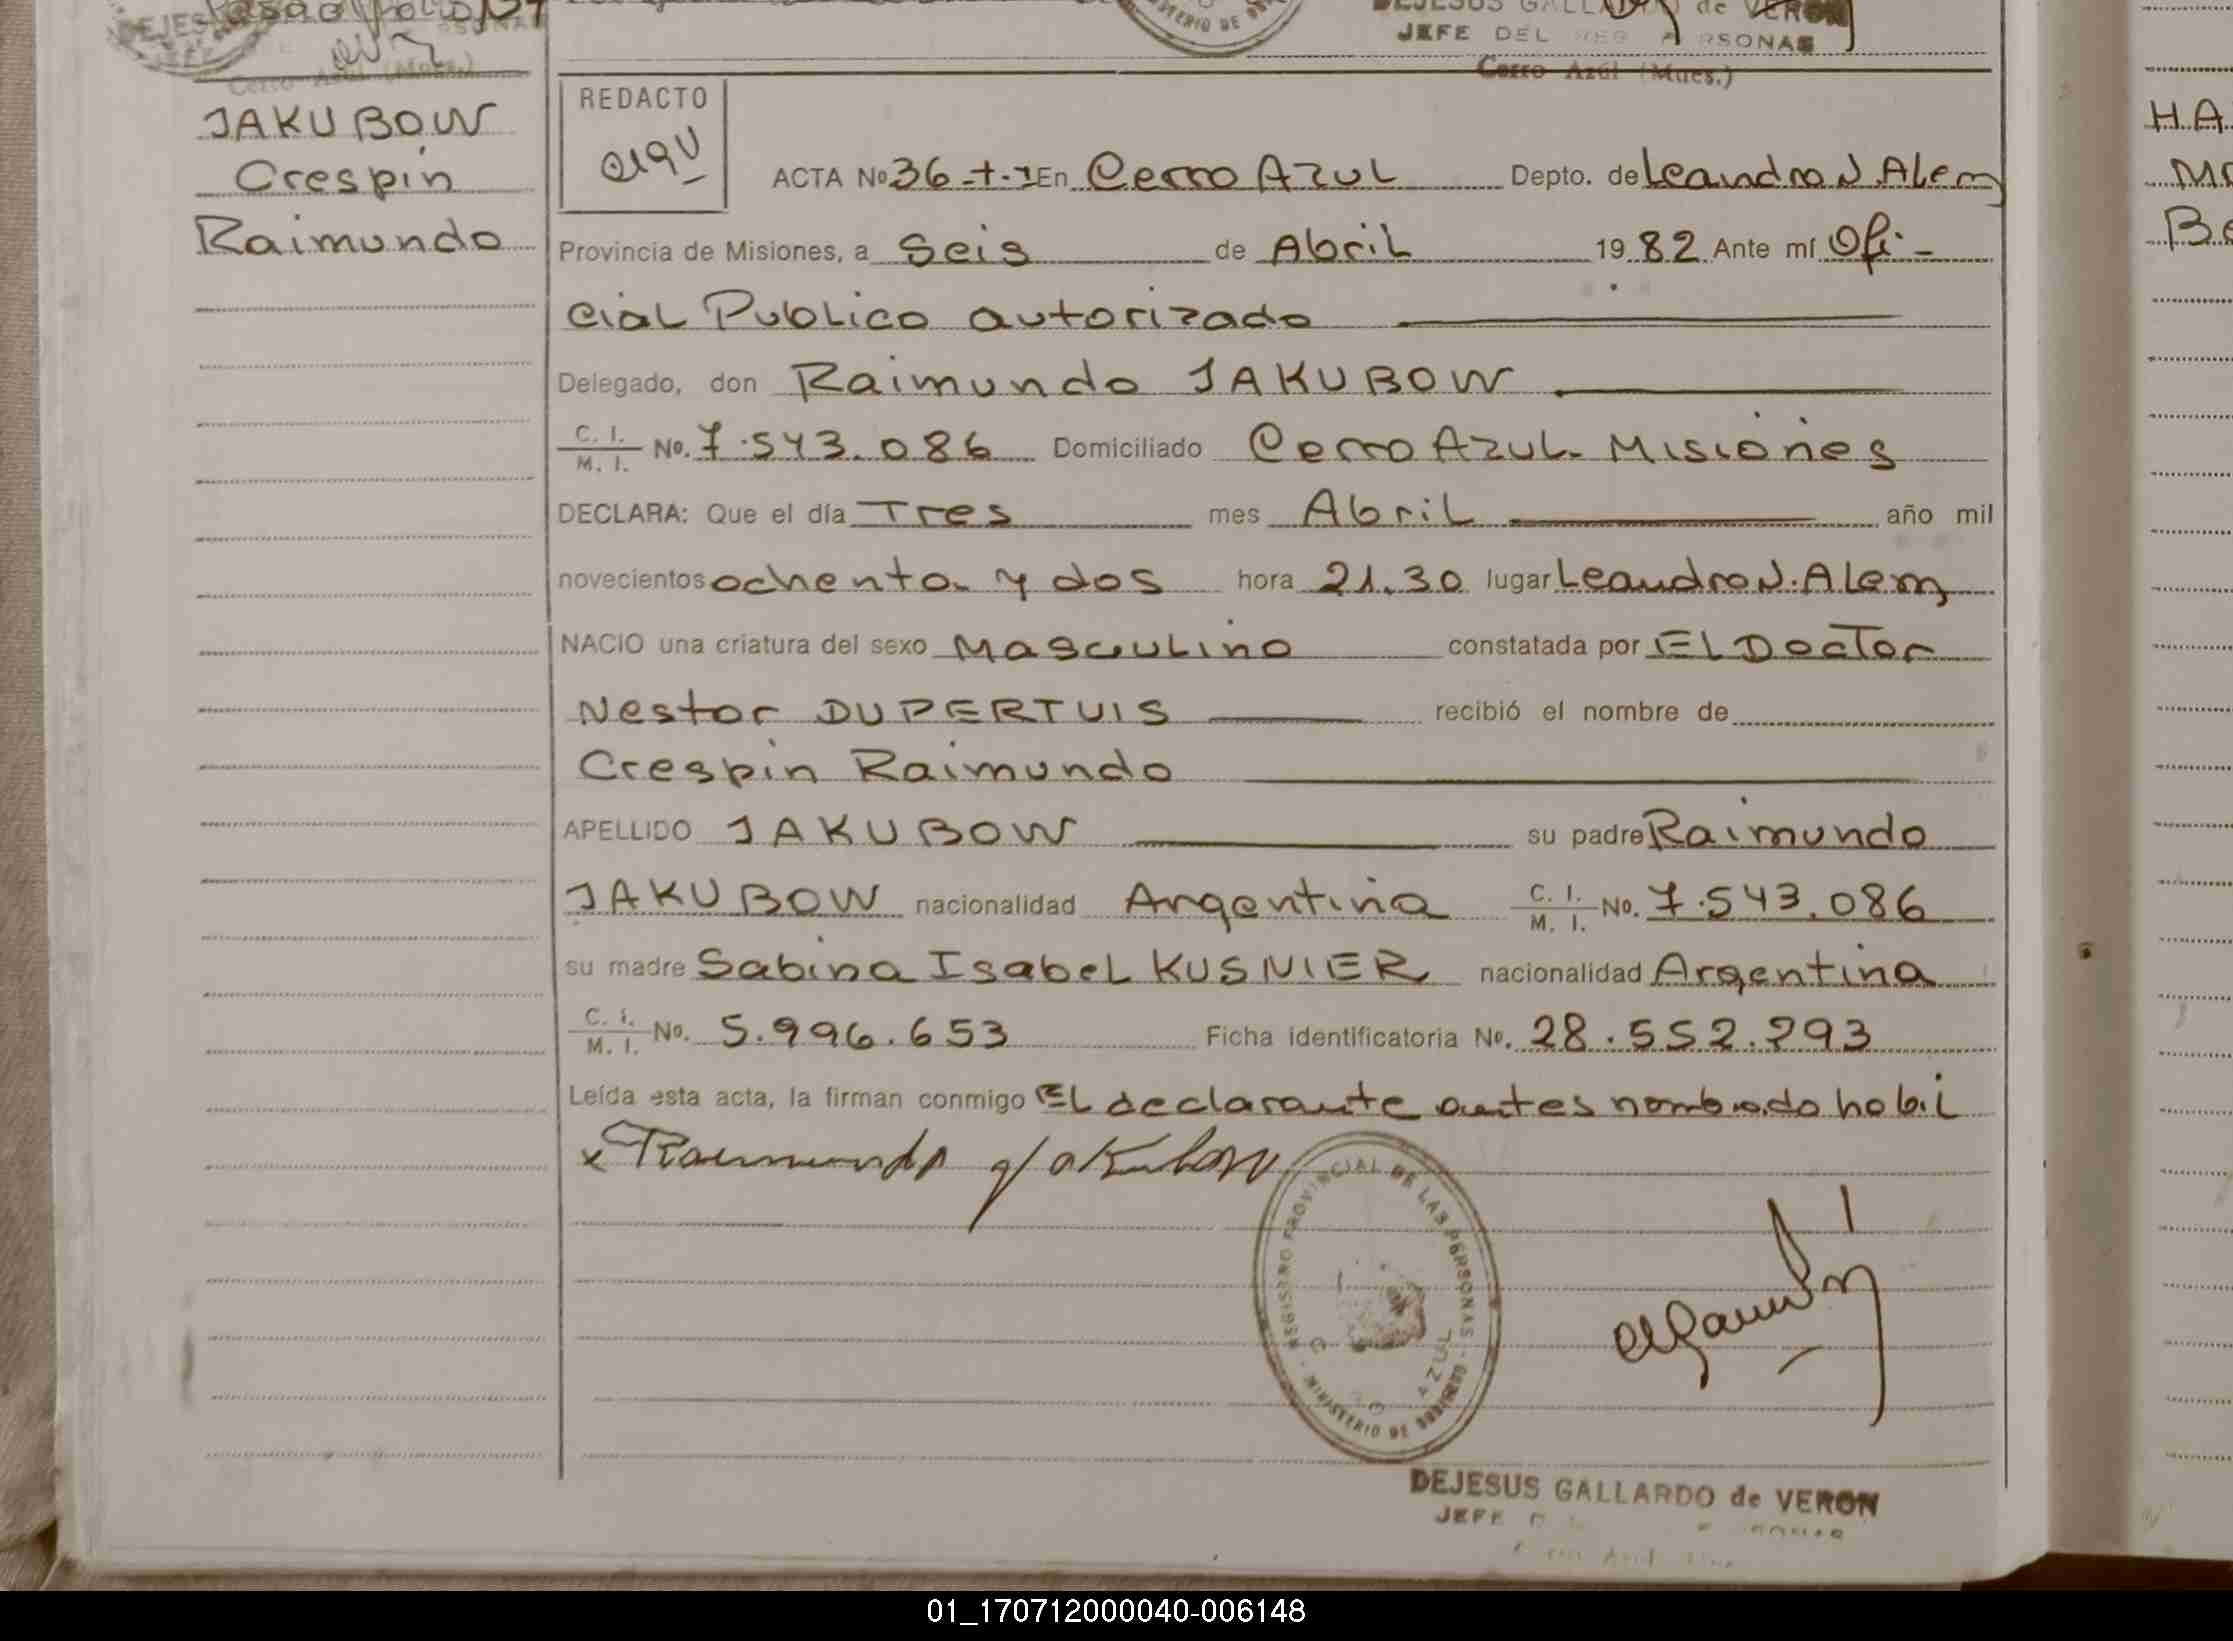 JEFE DEL
Cerro Azúl (Mnes.)
JAKUBOW
Crespin
Raimundo
REDACTO
ACTA Nº 36 - t - I En Cerro Azul Depto. de Leandro N. Alem
Provincia de Misiones, a Seis de Abril 1982 Ante mí Ofi-
cial Publico autorizado
Delegado, don Raimundo JAKUBOW
C. I. / M. I. Nº. 7.543.086 Domiciliado Cerro Azul - Misiones
DECLARA: Que el día Tres mes Abril año mil
novecientos ochenta y dos hora 21.30 lugar Leandro N. Alem
NACIO una criatura del sexo Masculino constatada por El Doctor
Nestor DUPERTUIS recibió el nombre de
Crespin Raimundo
APELLIDO JAKUBOW su padre Raimundo
JAKUBOW nacionalidad Argentina C. I. / M. I. Nº. 7.543.086
su madre Sabina Isabel KUSNIER nacionalidad Argentina
C. I. / M. I. Nº. 5.996.653 Ficha identificatoria Nº. 28.552.293
Leída esta acta, la firman conmigo El declarante antes nombrado habil
x Raimundo Jakubow
REGISTRO PROVINCIAL DE LAS PERSONAS - MINISTERIO DE GOBIERNO -
AZUL
DEJESUS GALLARDO de VERON
JEFE
01_170712000040-006148